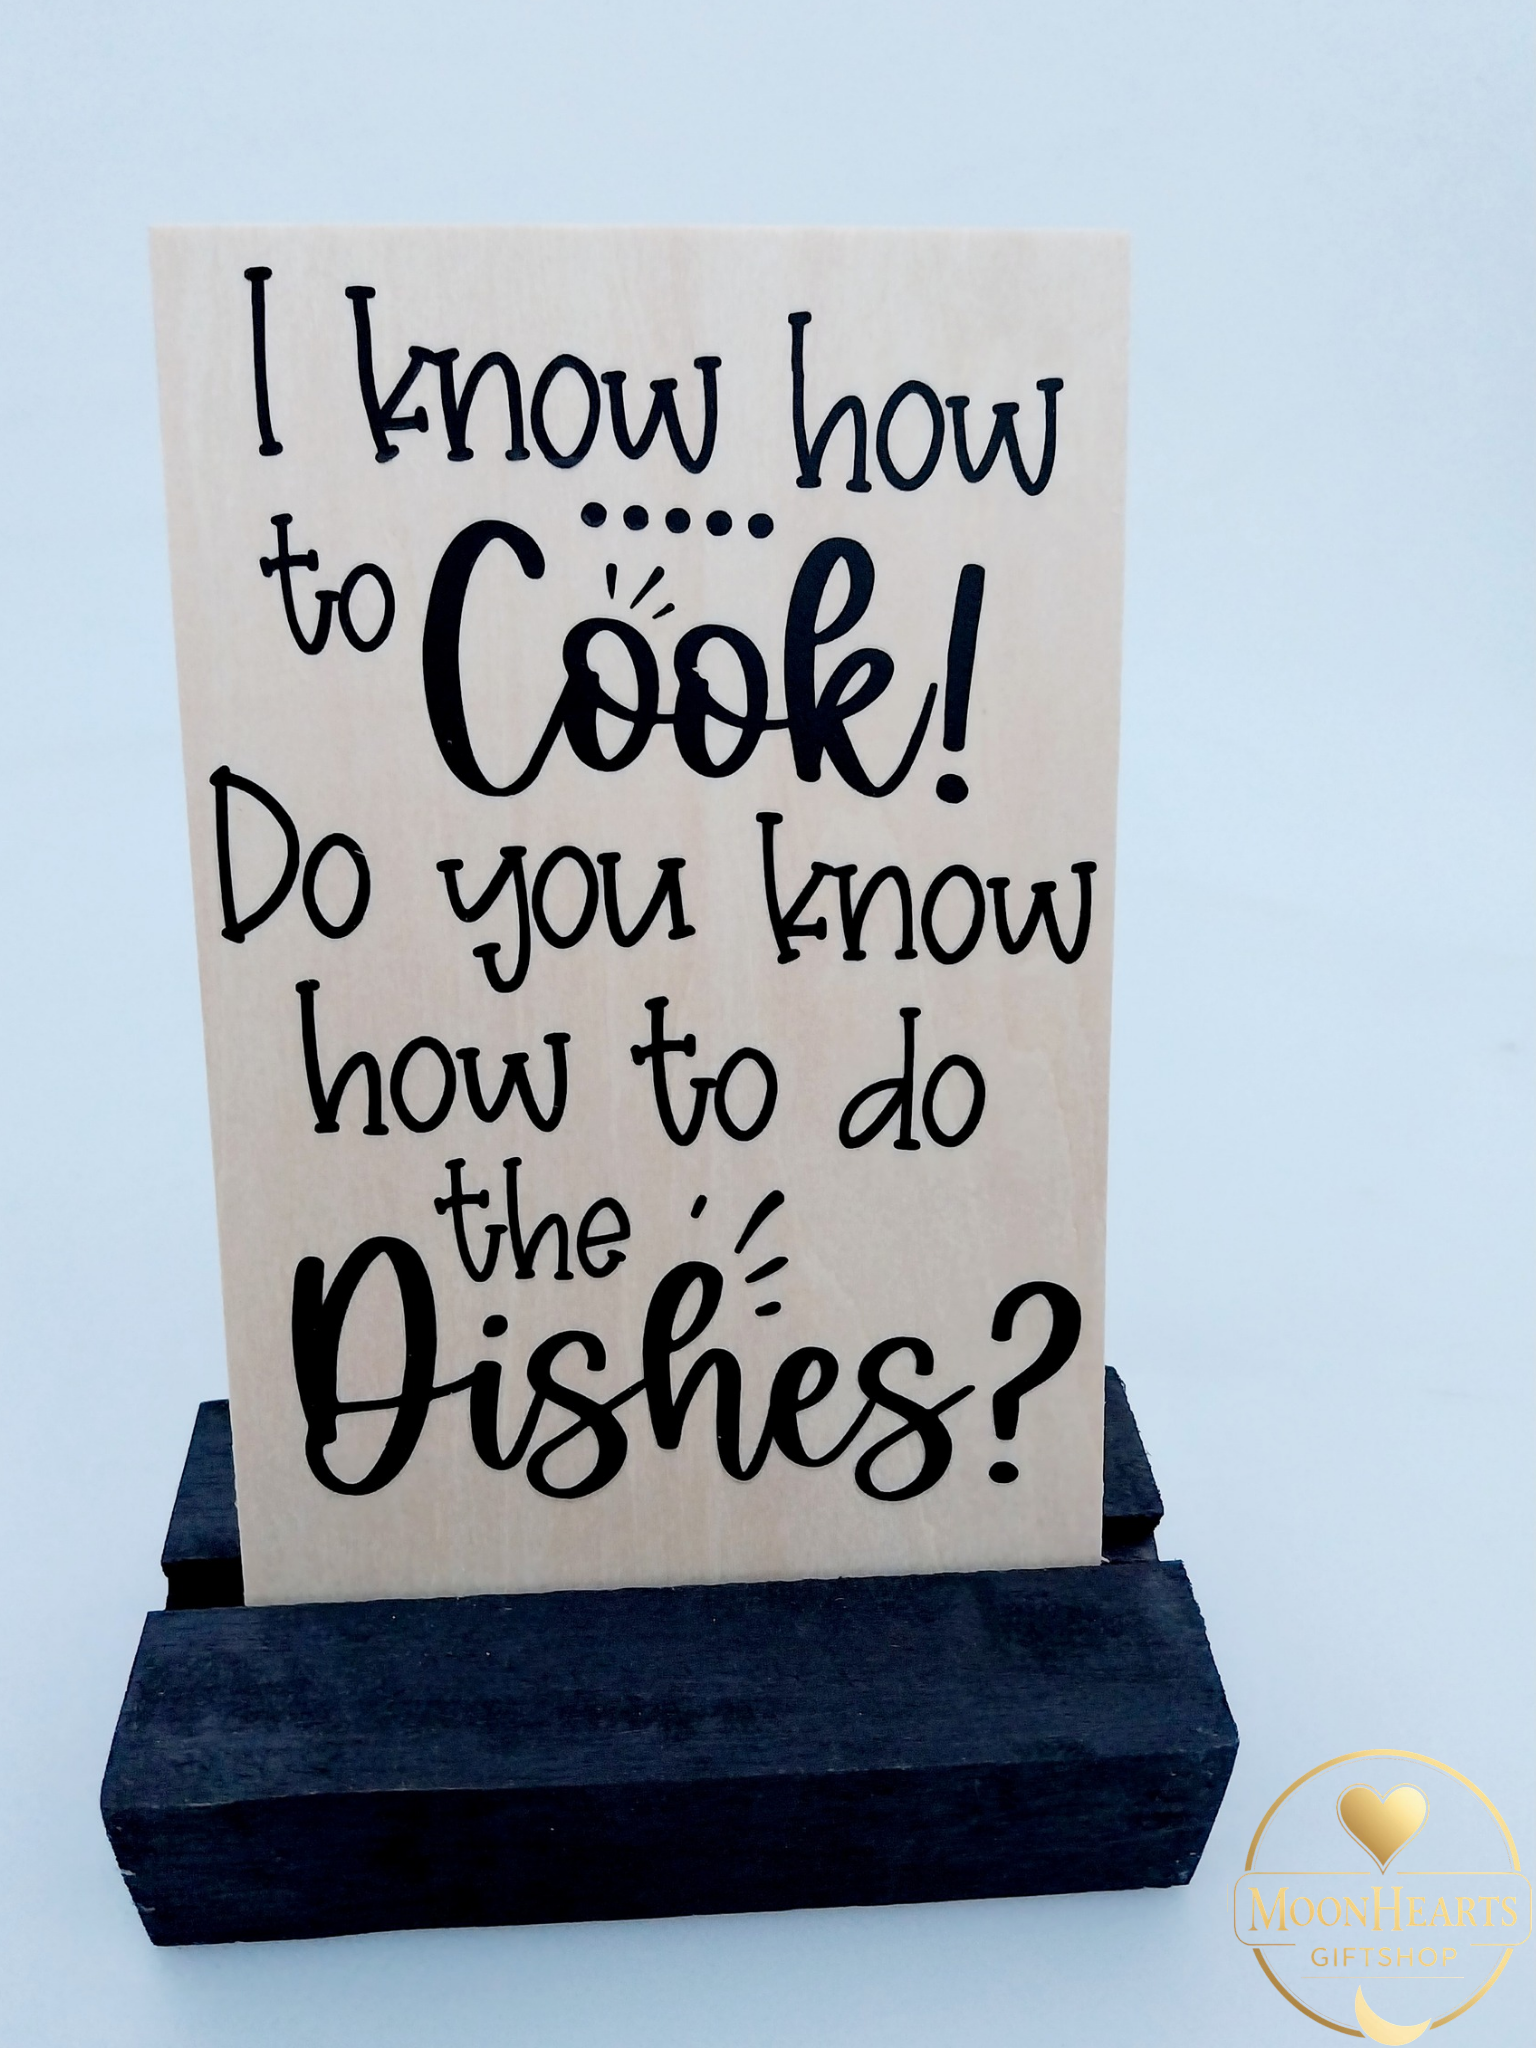 I know how
to Cook!
Do you know
how to do
the
Dishes?
MOONHEARTS
GIFTSHOP